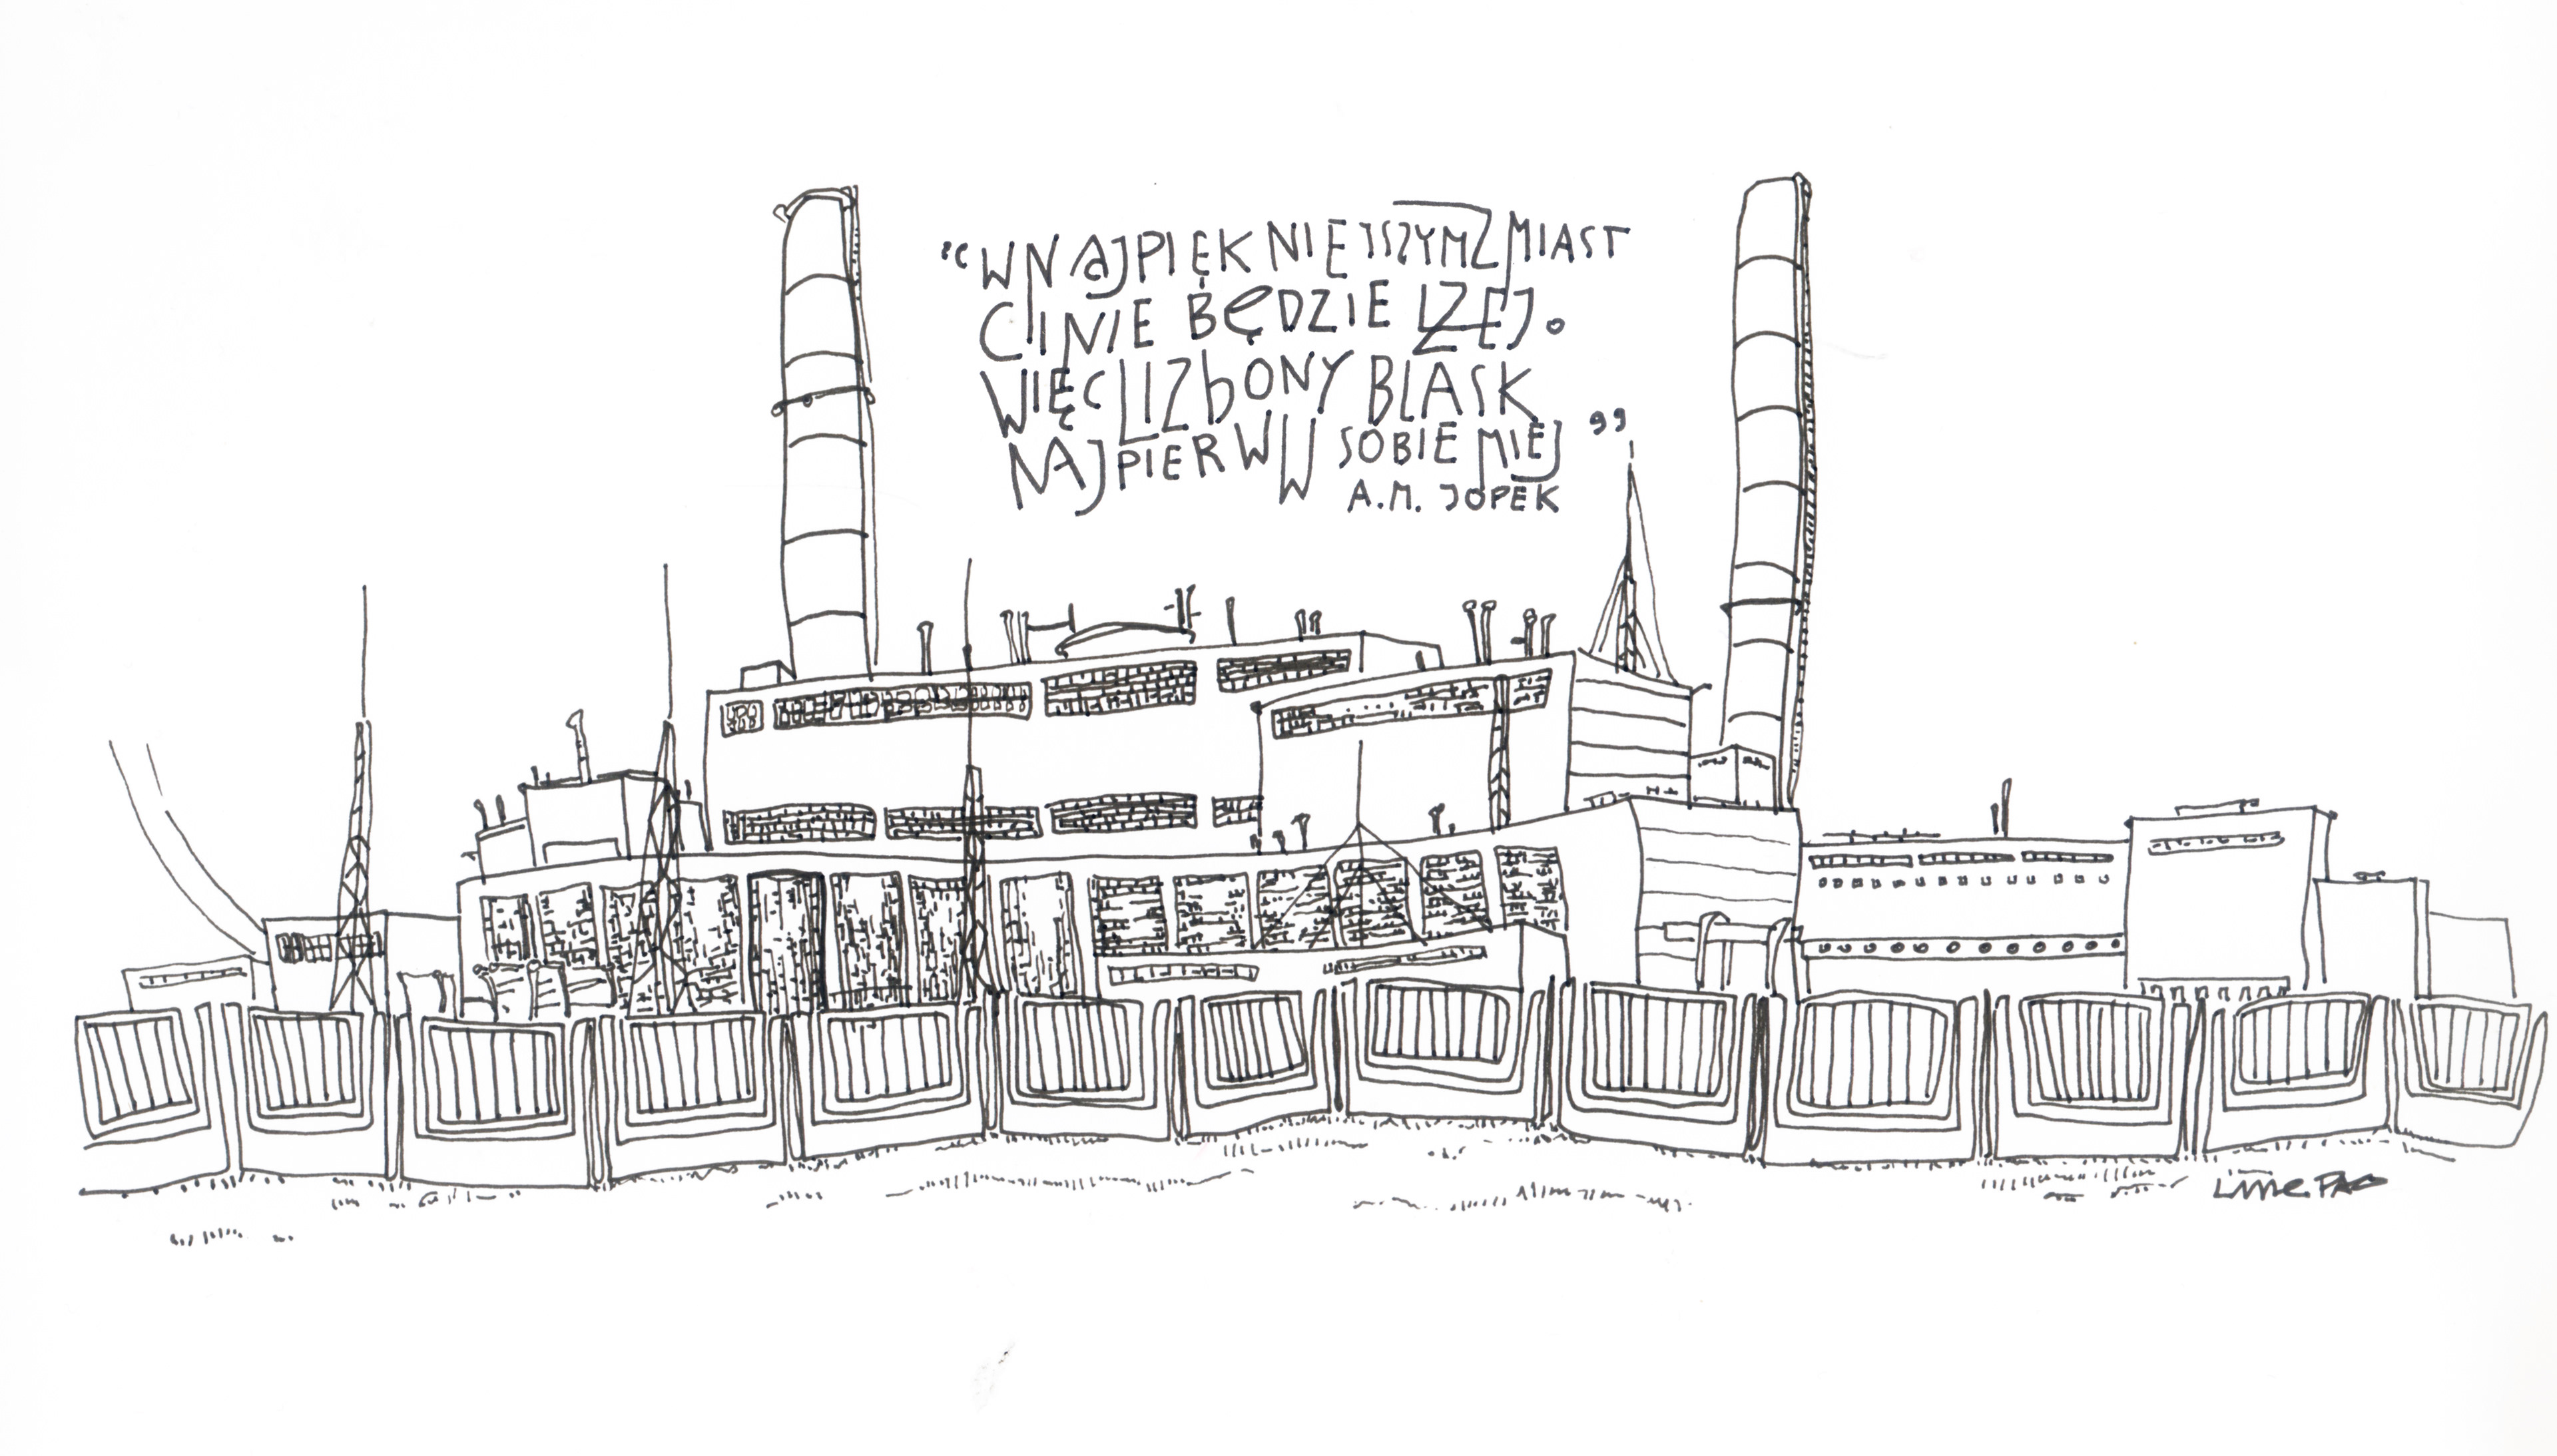 “W NAJPIĘKNIEJSZYM Z MIAST
CI NIE BĘDZIE LŻEJ.
WIĘC LIZBONY BLASK
NAJPIERW W SOBIE MIEJ”
A.M. JOPEK